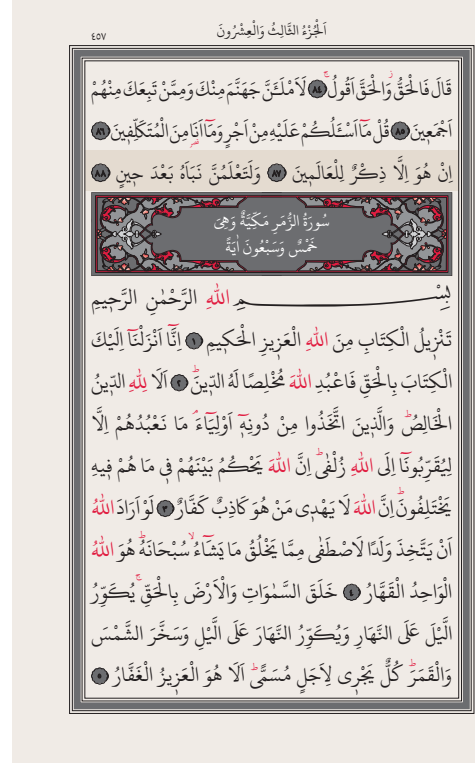 اَلْجُزْءُ الثَّالِثُ وَالْعِشْرُونَ
٤٥٧
قَالَ فَالْحَقُّ وَالْحَقَّ اَقُولُۚ ﴿٨٤﴾ لَاَمْلَـَٔنَّ جَهَنَّمَ مِنْكَ وَمِمَّنْ تَبِعَكَ مِنْهُمْ
اَجْمَعٖينَ ﴿٨٥﴾ قُلْ مَٓا اَسْـَٔلُكُمْ عَلَيْهِ مِنْ اَجْرٍ وَمَٓا اَنَا۬ مِنَ الْمُتَكَلِّفٖينَ ﴿٨٦﴾
اِنْ هُوَ اِلَّا ذِكْرٌ لِلْعَالَمٖينَ ﴿٨٧﴾ وَلَتَعْلَمُنَّ نَبَاَهُ بَعْدَ حٖينٍ ﴿٨٨﴾
سُورَةُ الزُّمَرِ مَكِّيَّةٌ وَهِيَ
خَمْسٌ وَسَبْعُونَ اٰيَةً
بِسْمِ اللّٰهِ الرَّحْمٰنِ الرَّحٖيمِ
تَنْزٖيلُ الْكِتَابِ مِنَ اللّٰهِ الْعَزٖيزِ الْحَكٖيمِ ﴿١﴾ اِنَّٓا اَنْزَلْنَٓا اِلَيْكَ
الْكِتَابَ بِالْحَقِّ فَاعْبُدِ اللّٰهَ مُخْلِصًا لَهُ الدّٖينَۜ ﴿٢﴾ اَلَا لِلّٰهِ الدّٖينُ
الْخَالِصُۜ وَالَّذٖينَ اتَّخَذُوا مِنْ دُونِهٖٓ اَوْلِيَٓاءَۢ مَا نَعْبُدُهُمْ اِلَّا
لِيُقَرِّبُونَٓا اِلَى اللّٰهِ زُلْفٰىۜ اِنَّ اللّٰهَ يَحْكُمُ بَيْنَهُمْ فٖي مَا هُمْ فٖيهِ
يَخْتَلِفُونَۜ اِنَّ اللّٰهَ لَا يَهْدٖي مَنْ هُوَ كَاذِبٌ كَفَّارٌ ﴿٣﴾ لَوْ اَرَادَ اللّٰهُ
اَنْ يَتَّخِذَ وَلَدًا لَاصْطَفٰى مِمَّا يَخْلُقُ مَا يَشَٓاءُۙ سُبْحَانَهُۜ هُوَ اللّٰهُ
الْوَاحِدُ الْقَهَّارُ ﴿٤﴾ خَلَقَ السَّمٰوَاتِ وَالْاَرْضَ بِالْحَقِّۚ يُكَوِّرُ
الَّيْلَ عَلَى النَّهَارِ وَيُكَوِّرُ النَّهَارَ عَلَى الَّيْلِ وَسَخَّرَ الشَّمْسَ
وَالْقَمَرَۜ كُلٌّ يَجْرٖي لِاَجَلٍ مُسَمًّىۜ اَلَا هُوَ الْعَزٖيزُ الْغَفَّارُ ﴿٥﴾